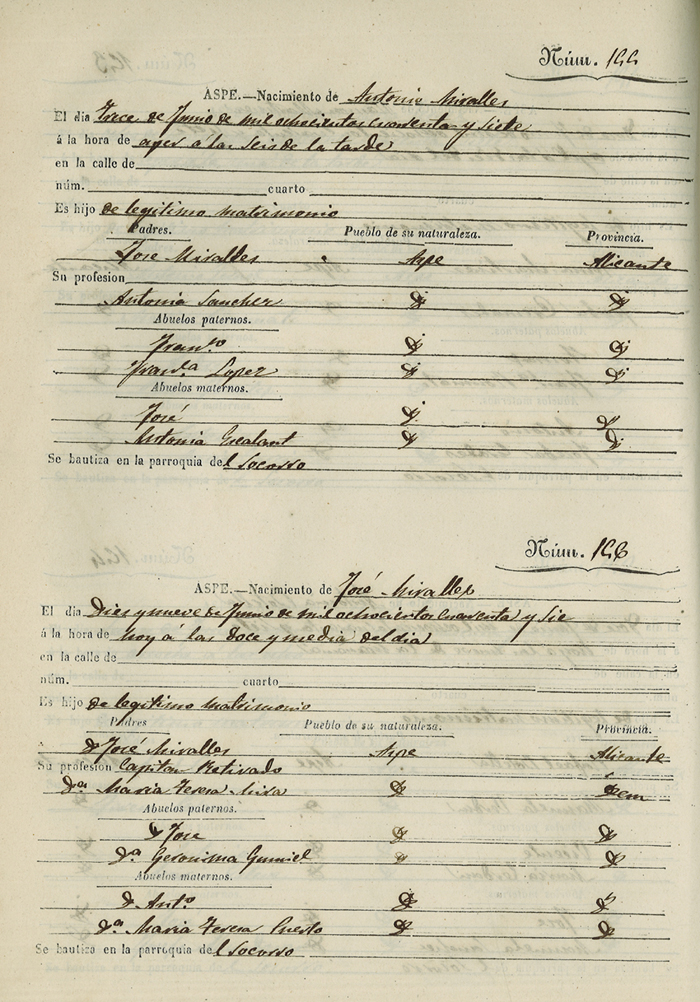 Núm. 144
ASPE.—Nacimiento de Antonio Miralles
El dia trece de Junio de mil ochocientos cuarenta y siete
á la hora de ayer a las seis de la tarde
en la calle de
núm. cuarto
Es hijo de legitimo matrimonio
Padres. Pueblo de su naturaleza. Provincia.
Jose Miralles Aspe Alicante
Su profesion
Antonia Sanchez
Abuelos paternos.
Franco
Franca Lopez
Abuelos maternos.
José
Antonia
Se bautiza en la parroquia del Socorro
Núm.
ASPE.—Nacimiento de José Miralles
El dia Dies y nueve de Junio de mil ochocientos cuarenta y sie
á la hora de hoy á las doce y media del dia
en la calle de
núm. cuarto
Es hijo de legitimo matrimonio
Padres Pueblo de su naturaleza. Provincia.
Dn José Miralles Aspe Alicante
Su profesion Capitan Retirado
Da Maria Teresa Mira
Abuelos paternos.
Jose
Da Geronima Gumiel
Abuelos maternos.
Anto
Da Maria Teresa
Se bautiza en la parroquia del Socorro